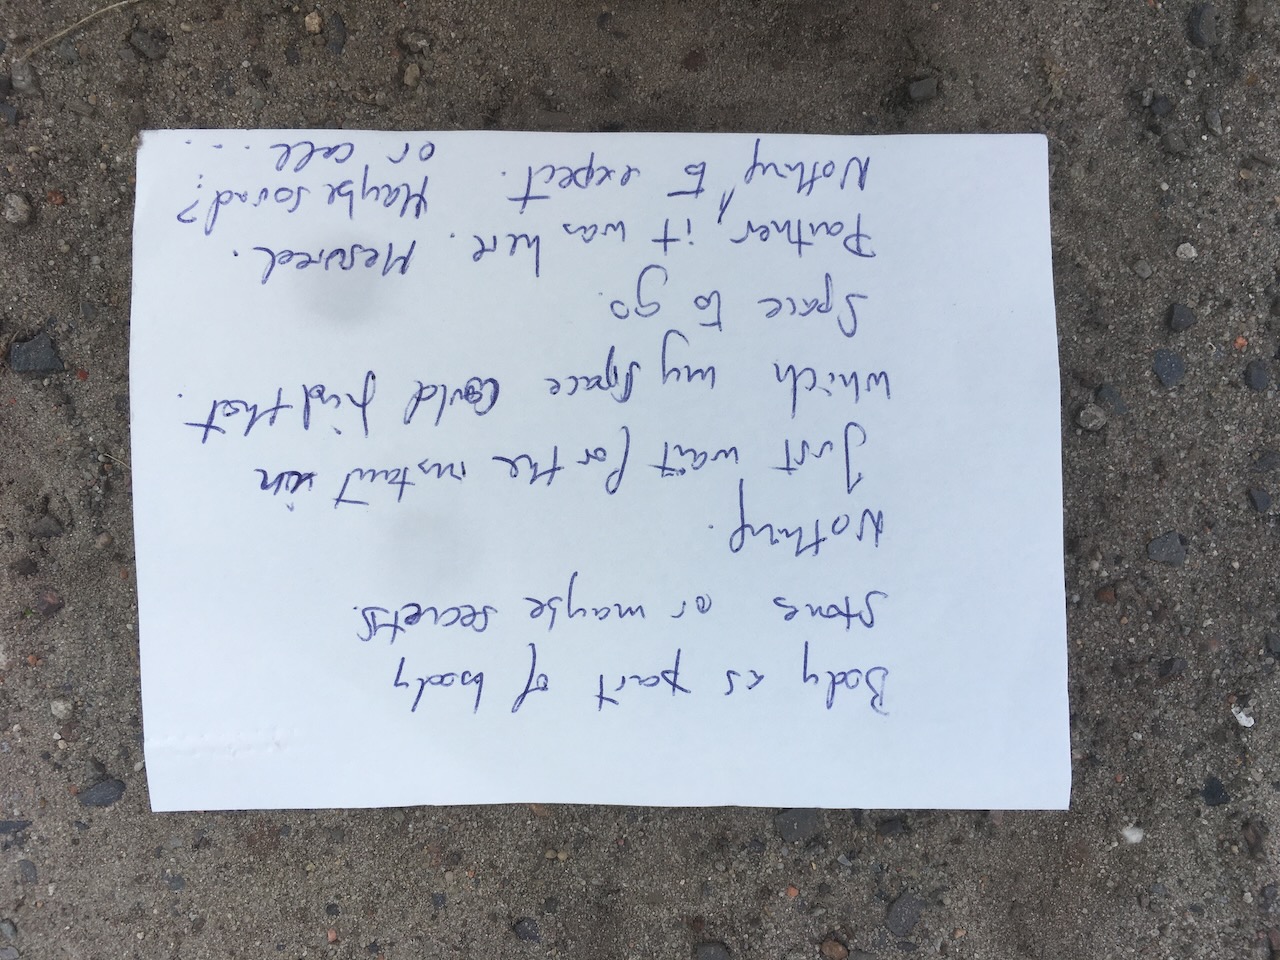 Body as part of body
stones or maybe secrets.
Nothing.
Just wait for the instant in
which my space could find that.
Space to go.
Partner, it was here. Mesured.
Nothing to expect. Maybe sound?
or call...